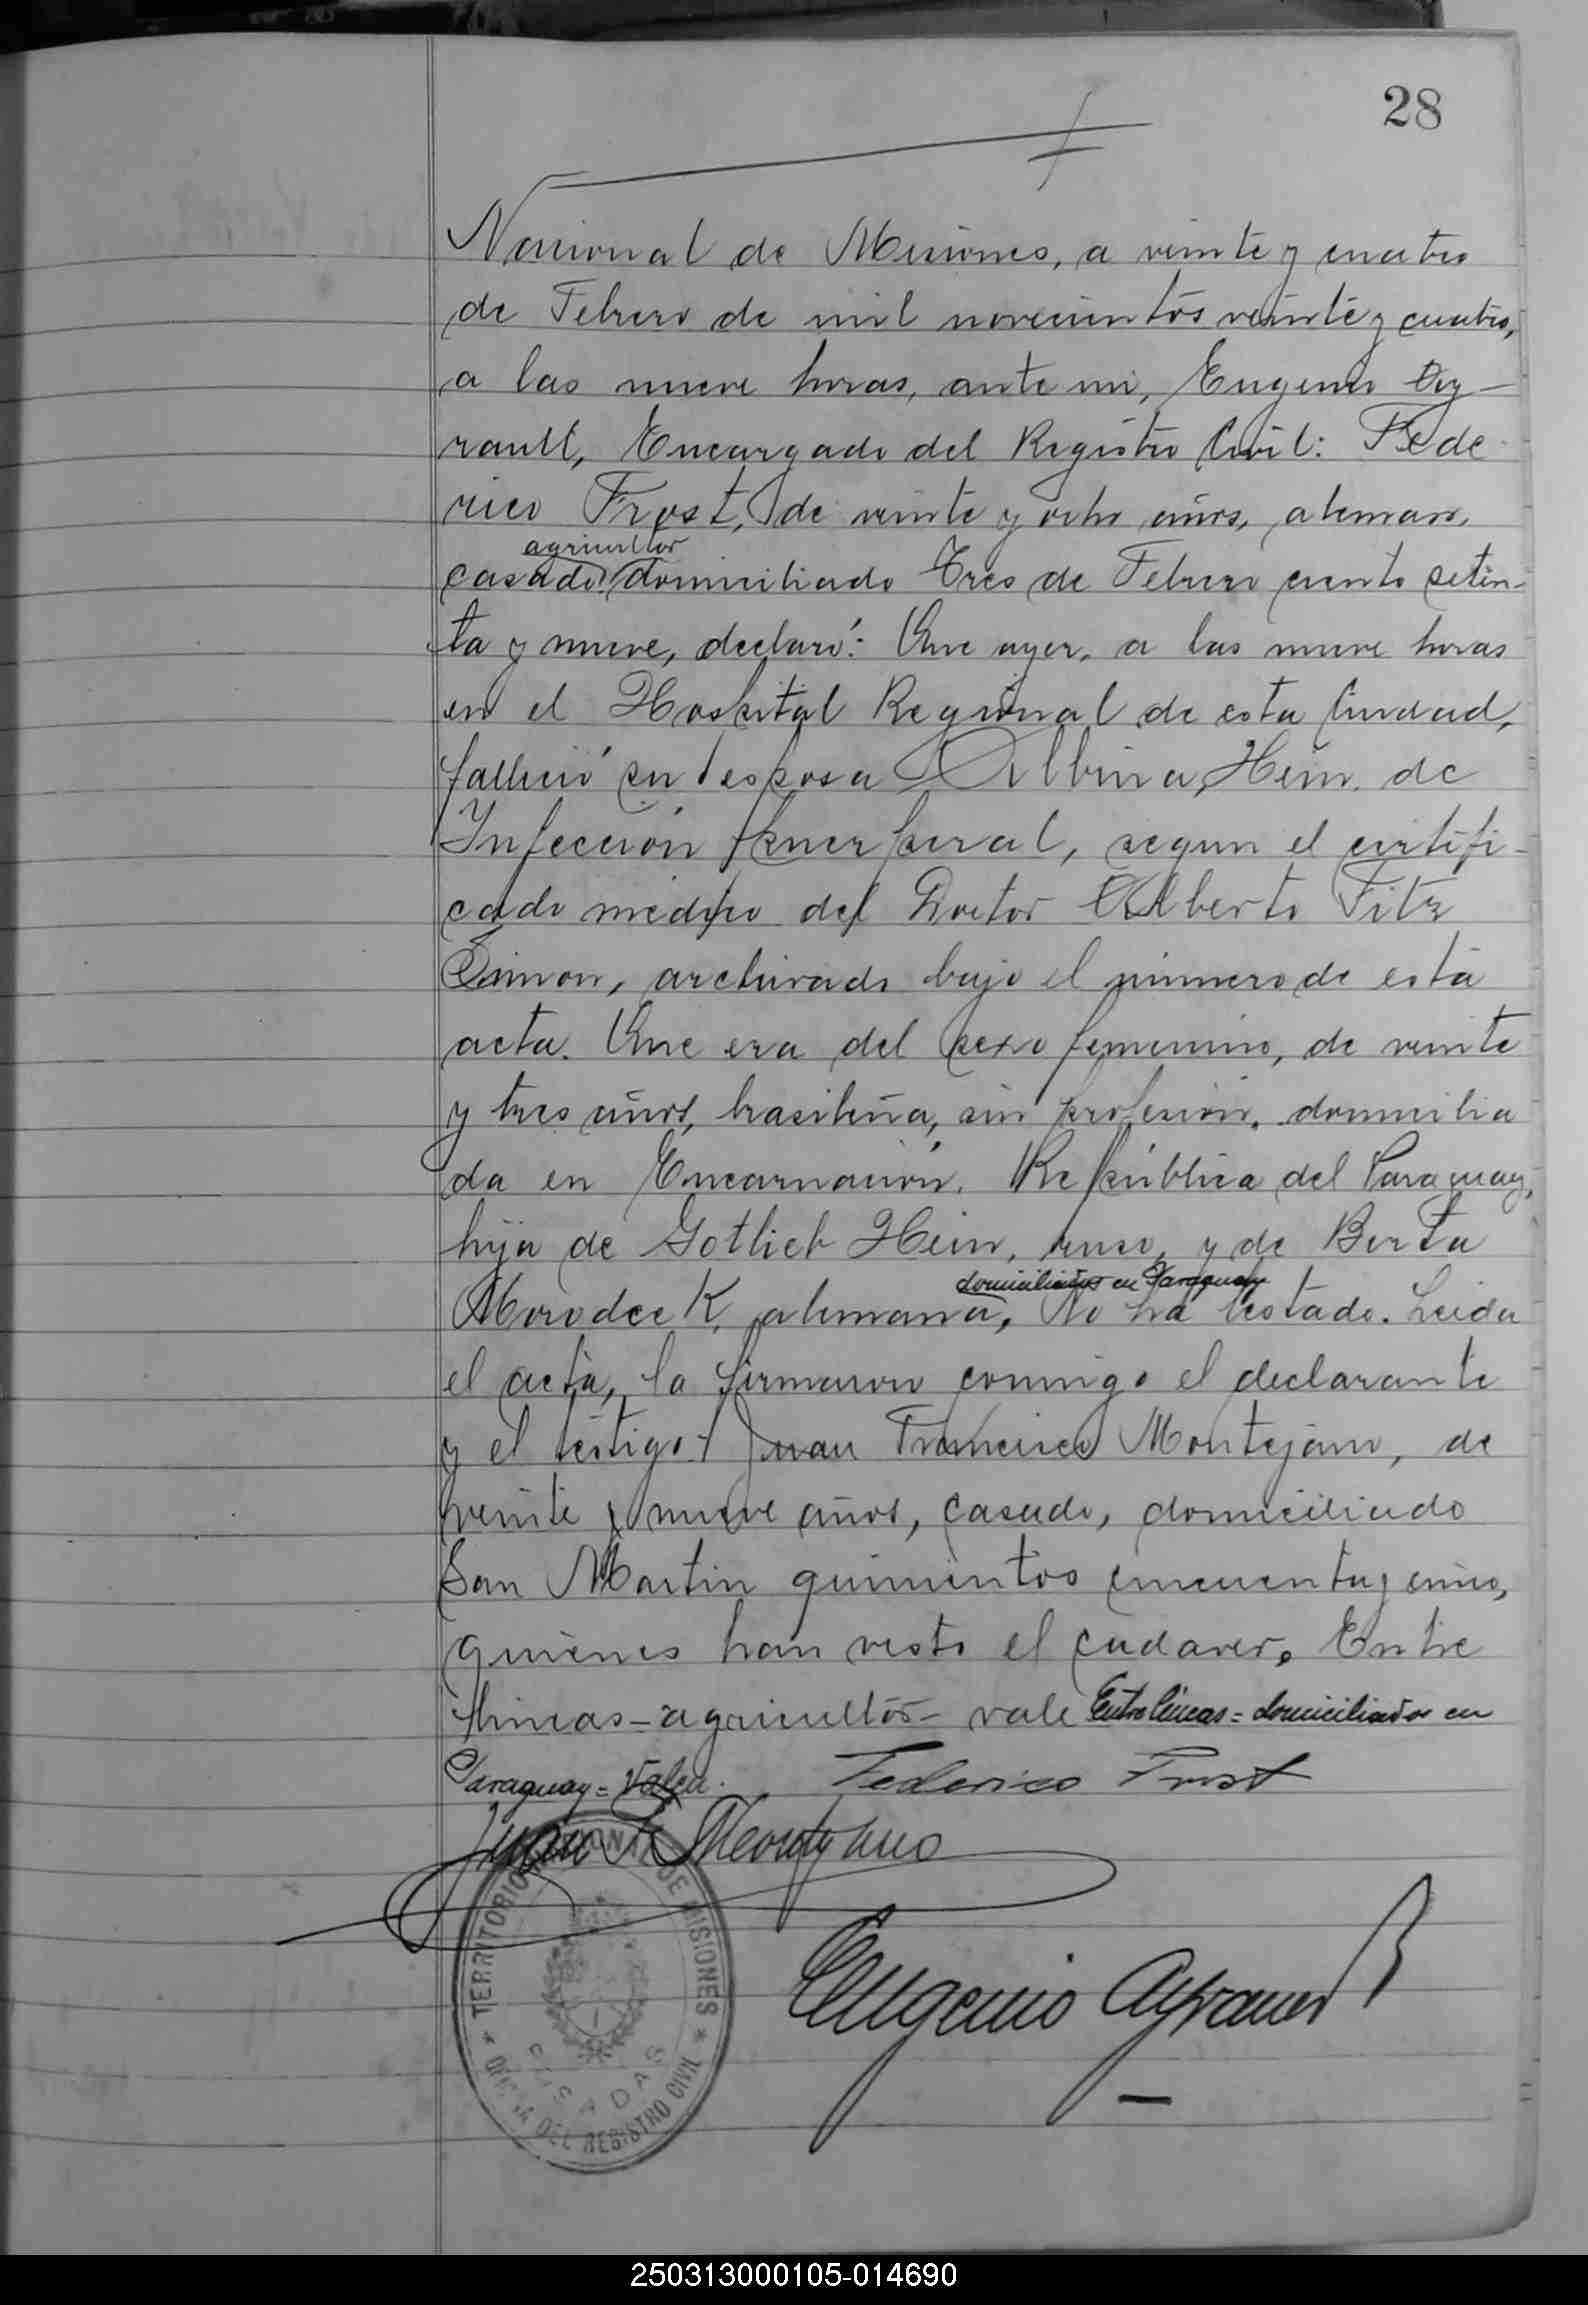 28
Nacional de Misiones, a veinte y cuatro
de Febrero de mil novecientos veinte y cuatro,
a las nueve horas, ante mi, Eugenio Ay-
rault, Encargado del Registro Civil: Fede
rico Frost, de veinte y ocho años, aleman,
agricultor
casado, domiciliado Tres de Febrero ciento seten-
ta y nueve, declaró: Que ayer, a las nueve horas
en el Hospital Regional de esta Ciudad,
falleció su esposa Albina Hein, de
Infección puerperal, segun el certifi-
cado medico del Doctor Alberto Fitz
Simon, archivado bajo el número de esta
acta. Que era del sexo femenino, de veinte
y tres años, brasileña, sin profesión, domicilia
da en Encarnación, República del Paraguay,
hija de Gotlieb Hein, ruso, y de Berta
domiciliados en Paraguay
Morodeck, alemana, No ha testado. Leida
el acta, la firmaron conmigo el declarante
y el testigo: Juan Francisco Montejano, de
veinte y nueve años, casado, domiciliado
San Martin quinientos cincuenta y cinco,
quienes han visto el cadaver. Entre
líneas=agricultor=vale Entre líneas=domiciliados en
Paraguay=Valen.
Federico Frost
Juan F Montejano
Eugenio Ayrault
TERRITORIO NACIONAL DE MISIONES
POSADAS
OFICINA DEL REGISTRO CIVIL
250313000105-014690